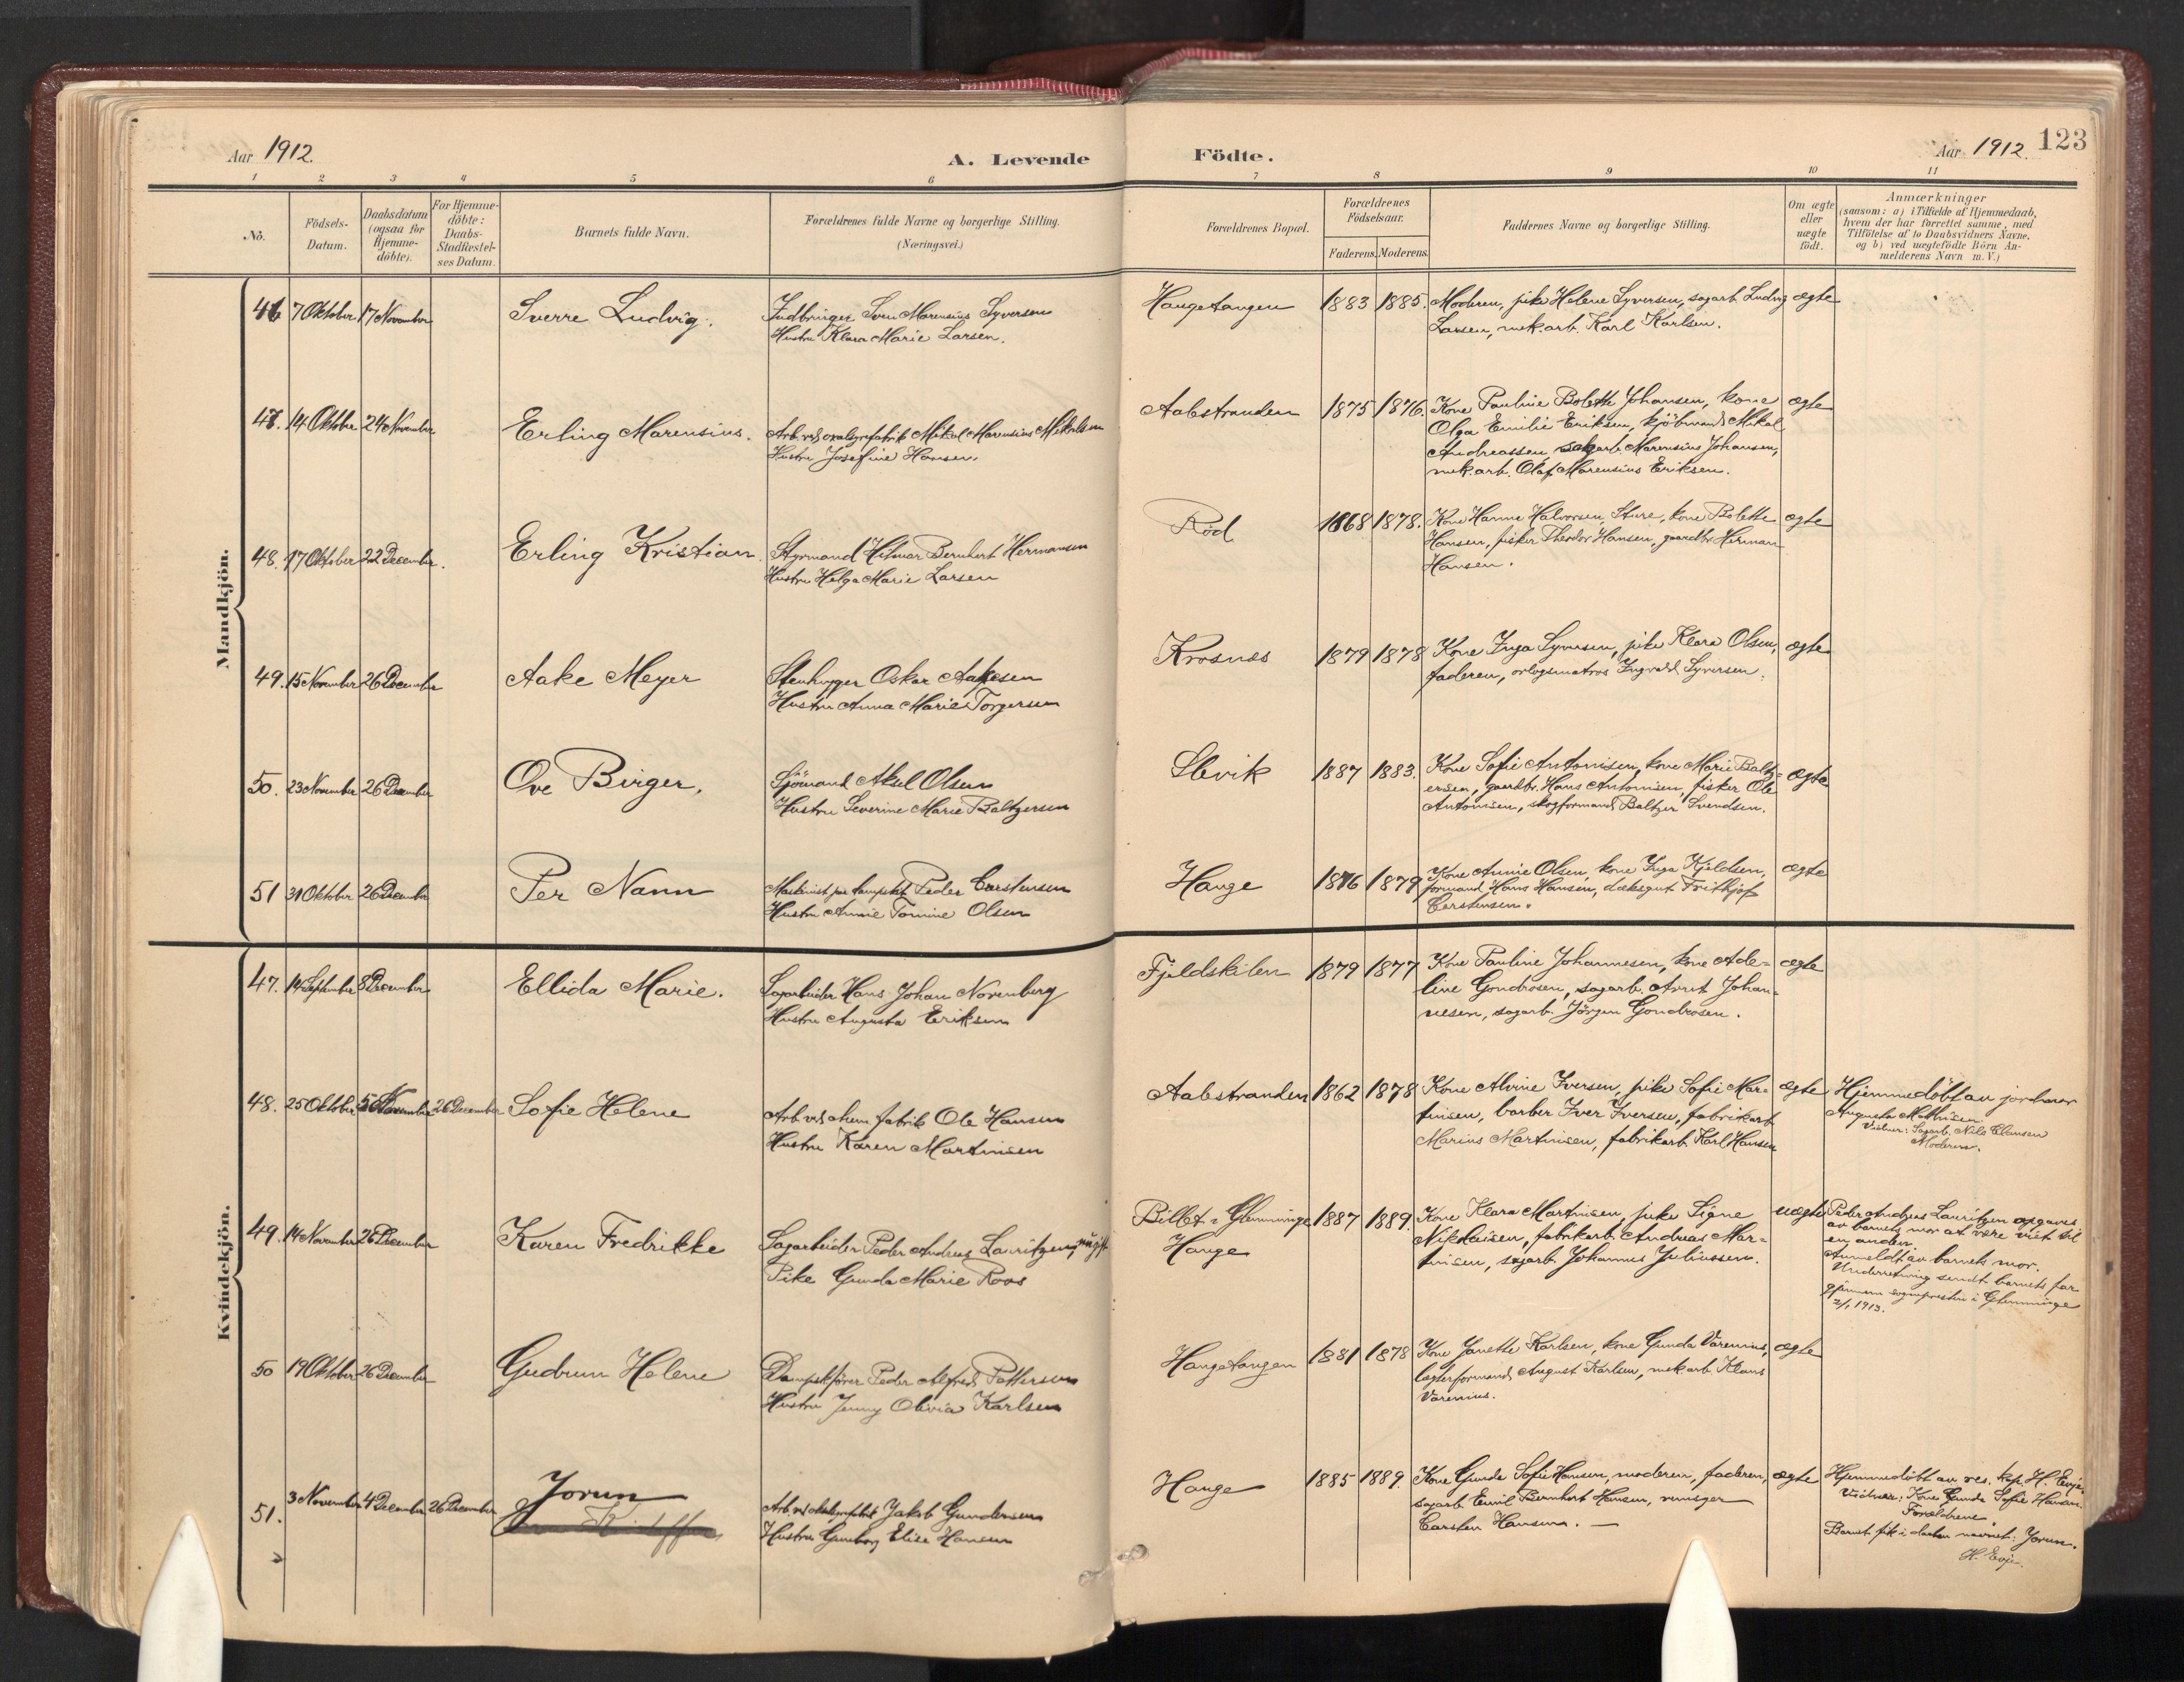 Aar 1912.
A. Levende
Födte.
Aar 1912.
123
1 2 3 4 5 6 7 8 9 10 11
No.
Födsels-
Datum.
Daabsdatum
(ogsaa for
Hjemme-
döbte).
For Hjemme-
döbte:
Daabs-
Stadfæstel-
ses Datum.
Barnets fulde Navn.
Forældrenes fulde Navne og borgerlige Stilling.
(Næringsvei.)
Forældrenes Bopæl.
Forældrenes
Födselsaar.
Faderens. Moderens.
Faddernes Navne og borgerlige Stilling.
Om ægte
eller
uægte
födt.
Anmærkninger
(saasom: a) i Tilfælde af Hjemmedaab,
hvem der har forrettet samme, med
Tilföielse af to Daabsvidners Navne,
og b) ved uægtefödte Börn An-
melderens Navn m. V.)
Mandkjön.
46 7 Oktober 17 November
Sverre Ludvig.
Indbringer Sven Marensius Syversen
Hustru Klara Marie Larsen.
Haugetangen
1883 1885.
Moderen, pike Helene Syversen, sagarb. Ludvig
Larsen, mek.arb. Karl Karlsen.
ægte
47. 14 Oktober 24 November
Erling Marensius.
Arb. ved oxalsyrefabrik Mikal Marensius Mikalsen
Hustru Josefine Hansen.
Aalestranden
1875 1876.
Kone Pauline Bolette Johansen, kone
Olga Emilie Eriksen, kjöbmand Mikal
Andreassen, sagarb. Marensius Johansen,
mek.arb. Olaf Marensius Eriksen.
ægte
48. 17 Oktober 22 December.
Erling Kristian.
Styrmand Hilmar Bernhart Hermansen
Hustru Helga Marie Larsen
Röd
1868 1878.
Kone Hanna Halvorsen, Sture, kone Bolette
Hansen, fisker Theodor Hansen, gaardbr. Herman
Hansen.
ægte
49. 15 November 26 December
Aake Meyer
Stenhugger Oskar Aakesen
Hustru Anna Marie Torgersen
Krosnes
1879 1878
Kone Inga Syversen, pike Klara Olsen,
faderen, orlogsmatros Ingvald Syversen.
ægte
50. 23 November 26 December
Ove Birger.
Sjömand Aksel Olsen
Hustru Severine Marie Baltzersen
Slevik
1887 1883.
Kone Sofie Antonisen, kone Marie Baltz-
ersen, gaardbr. Hans Antonisen, fisker Ole
Antonisen, skogformand Baltzer Svendsen.
ægte
51 31 Oktober 26 December
Per Nann
Maskinist paa dampskib Peder Carstensen
Hustru Annie Tomine Olsen
Hauge
1876 1879
Kone Annie Olsen, kone Inga Kjeldsen,
formand Hans Hansen, dæksgut Frithjof
Carstensen.
ægte
Kvindekjön.
47. 14 September 8 December
Ellida Marie.
Sagarbeider Hans Johan Norenberg
Hustru Augusta Eriksen
Fjeldskilen
1879 1877
Kone Pauline Johannesen, kone Ade-
line Gondrosen, sagarb. Arnt Johan-
nesen, sagarb. Jörgen Gondrosen.
ægte
48. 25 Oktober 5 November 26 December
Sofie Helene
Arb. ved chem. fabrik Ole Hansen
Hustru Karen Martinisen
Aalestranden
1862 1878
Kone Alvine Iversen, pike Sofie Mar-
tinisen, barber Iver Iversen, fabrikarb.
Marius Martinisen, fabrikarb. Karl Hansen
ægte
Hjemmedöbt av jordmor
Augusta Mathisen.
Vidner: Sagarb. Nils Clausen
Moderen.
49. 14 November 26 December
Karen Fredrikke
Sagarbeider Peder Andreas Lauritzen, ugift
Pike Gunda Marie Roos
Billet i Glemminge
Hauge
1887 1889.
Kone Klara Martinisen, pike Signe
Nikolaisen, fabrikarb. Andreas Mar-
tinisen, sagarb. Johannes Juliussen.
uægte
Peder Andreas Lauritzen opgaves
av barnets mor at være viet til
en anden.
Anmeldt av barnets mor.
Underretning sendt barnets far
gjennem sognepresten i Glemminge
2/1 1913.
50 19 Oktober 26 December
Gudrun Helene
Dampskfører Peder Alfred Pettersen
Hustru Jenny Olivia Karlsen
Haugetangen
1881 1878
Kone Janette Karlsen, kone Gunda Varenius,
lagterformand August Karlsen, mek.arb. Klaus
Varenius.
ægte
51. 3 November 4 December 26 December
Jorun
Arb. ved oxalsyrefabrik Jakob Gundersen
Hustru Gunborg Elise Hansen
Hauge
1885 1889.
Kone Gunda Sofie Hansen, moderen, faderen,
sagarb. Emil Bernhart Hansen, ringer
Carsten Hansen. —
ægte
Hjemmedöbt av res. kap. H. Evje.
Vidner: Kone Gunda Sofie Hansen
Forældrene
Barnet fik i daaben navnet: Jorun.
H. Evje.